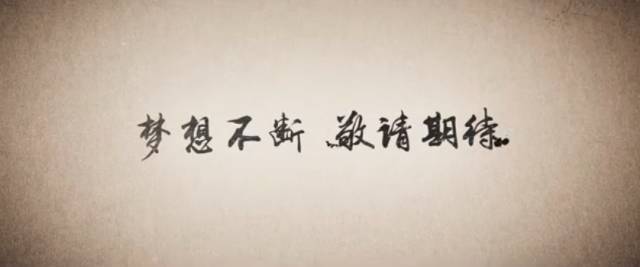 梦想不断 敬请期待...